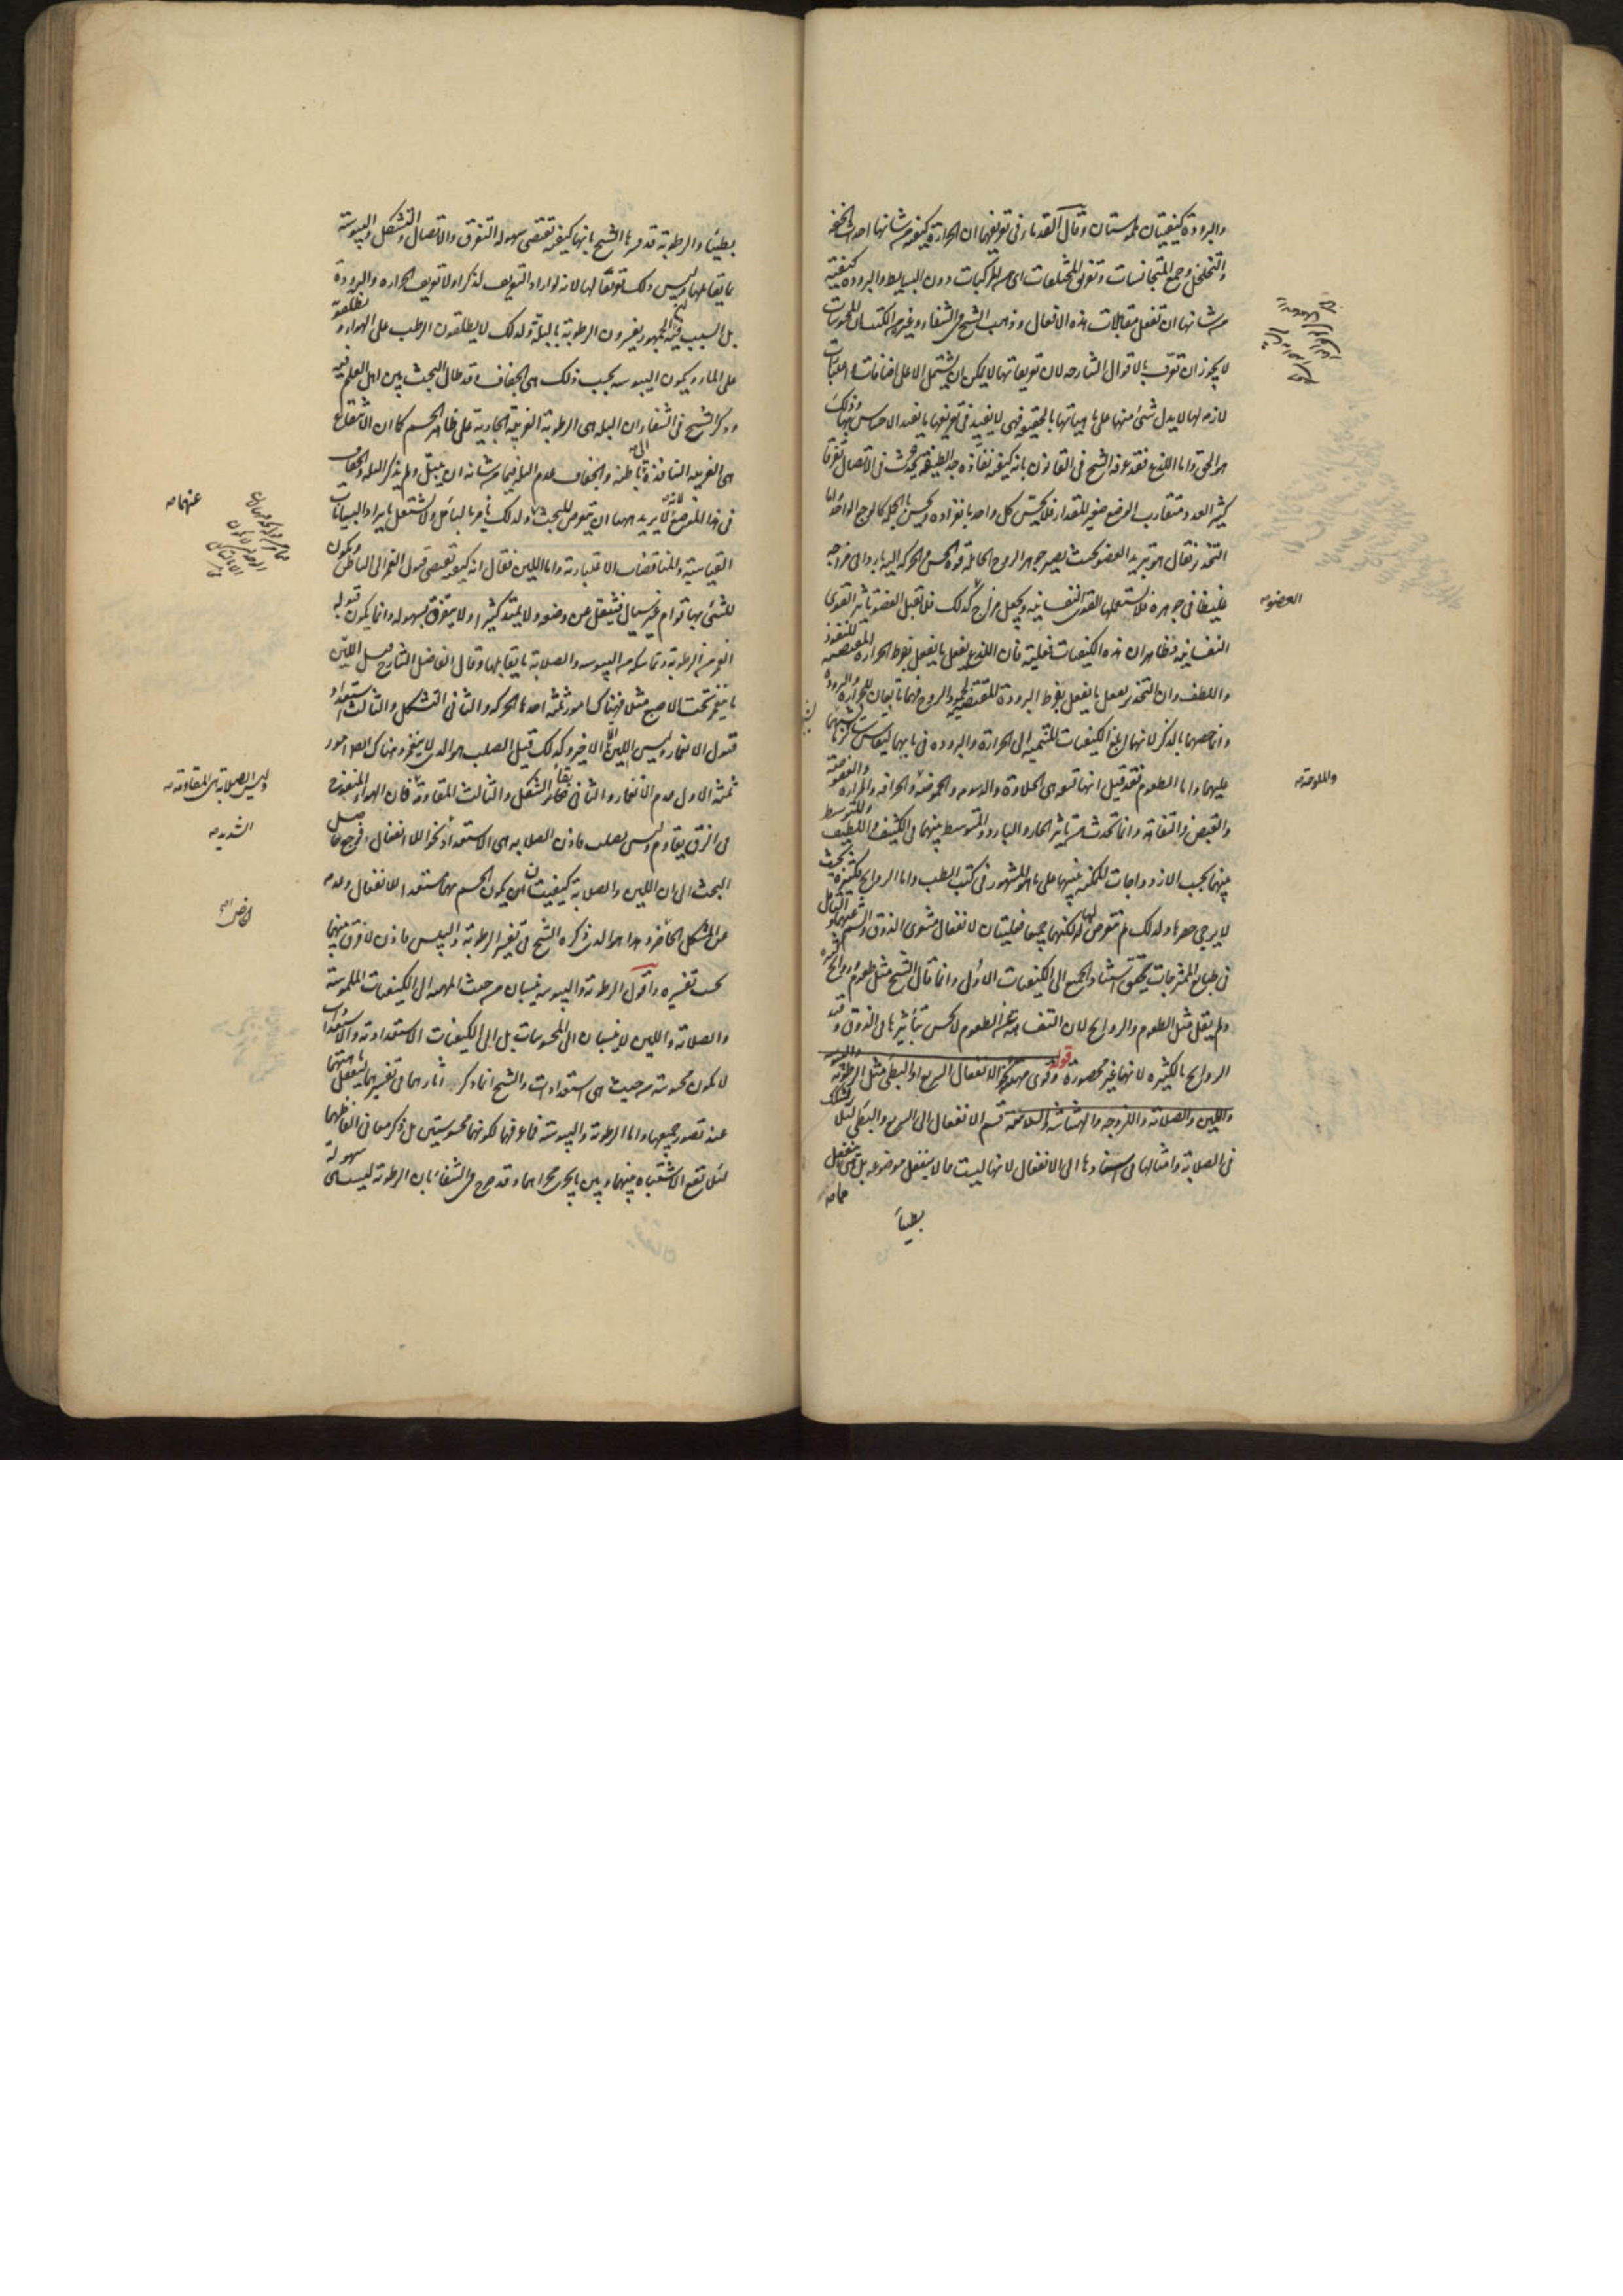 والبرودة كيفيتان ملموستان وقال القدماء فى تعريفهما ان الحرارة كيفية من شانها احداث الخفة
والتخلخل وجمع المتجانسات وتفريق المختلفات اى من المركبات دون البسايط والبرودة كيفية
من شانها ان تفعل مقابلات هذه الافعال وذهب الشيخ فى الشفاء وغيره من الكتب ان المحسوسات
لا يجوز ان تعرف بالاقوال الشارحه لان تعريفاتها لا يمكن ان يشتمل الا على اضافات واعتبارات
لازمه لها لا يدل شئ منها على ماهياتها بالحقيقه فهى لا يفيد فى تعريفها ما يفيد الاحساس بها وذلك
هو الحق واما اللذع فقد عرفه الشيخ فى القانون بانه كيفية نفاذه جدا لطيفة تحدث فى الاتصال تفرقا
كثير العدد متقارب الوضع صغير المقدار فلا يحس كل واحد بانفراده ويحس بالجمله كالوجع الواحد واما
التخدر فقال هو تبريد العضو بحيث يصير جوهر الروح الحامله قوة الحس والحركه اليه باردا فى مزاجه
غليظا فى جوهره فلا تستعملها القوى النفسانيه ويجعل مزاج كذلك فلا تقبل العضو تاثير القوى
العضو صح
النفسانيه فظاهر ان هذه الكيفيات فعلية فان اللذع يفعل ما يفعل بفرط الحراره المقتضيه للنفوذ
واللطف وان التخدر يفعل ما يفعل بفرط البرودة المقتضية لجمود الروح فهما تابعان للحرارة والبرودة
وانما خصهما بالذكر لانهما ابلغ الكيفيات المنتميه الى الحرارة والبروده فى بابهما ليقاس سائرها
عليهما واما الطعوم فقد قيل انها تسعه هى الحلاوة والدسومه والحموضة والحرافه والمراره والعفوصة
والملوحة صح
والقبض والتفاهة وانما تحدث من تاثير الحار والبارد والمتوسط بينهما فى الكثيف واللطيف والمتوسط
بينهما بحسب الازدواجات الممكنه بينها على ما هو المشهور فى كتب الطب واما الروايح فكثيرة بحيث
لا يرجى حصرها ولذلك لم تتعرض لها لكنهما جميعا فعليتان لانفعال مشعرى الذوق والشم عنهما والتامل
فى طبايع الممتزجات يحقق استناد الجميع الى الكيفيات الاول وانما قال الشيخ مثل طعوم وروايح كثيره
ولم يقل مثل الطعوم والروايح لان التفاهة من الطعوم لا يحس بتاثيرها فى الذوق وقيد
الروايح بالكثيره لانها غير محصورة قوله وقوى مهيئة نحو الانفعال السريع او البطئ مثل الرطوبة واليبوسه
واللين والصلابه واللزوجه والهشاشة والسلاسة قسم الانفعال الى السريع والبطئ لئلا يشكك
فى الصلابة وامثالها فى اسنادها الى الانفعال لانها ليست مما لا ينفعل موضوعه بل مما ينفعل
بطيئا
بطيئا والرطوبة قد فسرها الشيخ بانها كيفية تقتضى سهولة التفرق والاتصال والتشكل واليبوسة
بما يقابلها وليس ذلك تعريفا لها لانه لو اراد التعريف لذكر اولا تعريف الحراره والبرودة
بل السبب فيه ان الجمهور يفسرون الرطوبة بالبلة ولذلك لا يطلقون الرطب على الهواء ويطلقونه
على الماء ويكون اليبوسه بحسب ذلك هى الجفاف وقد طال البحث بين اهل العلم فيه
وذكر الشيخ فى الشفاء ان البله هى الرطوبة الغريبة الجارية على ظاهر الجسم كما ان الانتقاع
هى الغريبه النافذة الى باطنه والجفاف عدم البله فيما من شانه ان يبتل ولم يذكر البله والجفاف
فى هذا الموضع لانه لا يريد ههنا ان يتعرض للبحث ولذلك يامر بالتامل ولا يشتغل بايراد البيانات
عنهما صح
القياسية والمناقضات الاعتبارية واما اللين فقال انه كيفية تقتضى قبول الغمز الى الباطن ويكون
للشئ بها قوام غير سيال فينتقل عن وضعه ولا يمتد كثيرا ولا يتفرق بسهوله وانما يكون قبوله
الغمز من الرطوبة وتماسكه من اليبوسه والصلابة ما يقابلها وقال الفاضل الشارح قيل اللين
ما ينغمز تحت الاصبع مثلا فهناك امور ثلثه احدها الحركه والثانى التشكل والثالث استعداد
قبول الانغمار وليس اللين الا الاخير وكذلك قيل الصلب هو الذى لا ينغمز وهناك ايضا امور
ثلثه الاول عدم الانغمار والثانى بقاء الشكل والثالث المقاومة فان الهواء المنفوخ
وليس الصلابة هى المقاومة صح
فى الزق يقاوم وليس بصلب فاذن الصلابه هى الاستعداد نحو اللاانفعال فرجع حاصل
الشديد صح
البحث الى ان اللين والصلابة كيفيتان يكون الجسم بهما مستعدا للانفعال وعدمه
عن المشكل الحاضر وهذا هو الذى ذكره الشيخ فى تفسير الرطوبة واليبس فاذن لا فرق بينهما
بحسب تفسيره واقول الرطوبه واليبوسه ينسبان من حيث المهيه الى الكيفيات الملموسة
والصلابة واللين لا ينسبان الى المحسوسات بل الى الكيفيات الاستعداديه والاستعدادات
لا تكون محسوسة من حيث هى استعدادات والشيخ انما ذكر آثارهما فى تفسيرهما ليتعقل ماهيتهما
عند تصور جميعها واما الرطوبة واليبوسة فما عرفها لكونهما محسوستين بل ذكر معانى الفاظهما
لئلا تقع الاشتباه بينهما وبين ما يجرى مجراهما وقد صرح فى الشفاء بان الرطوبه ليست هى سهولة